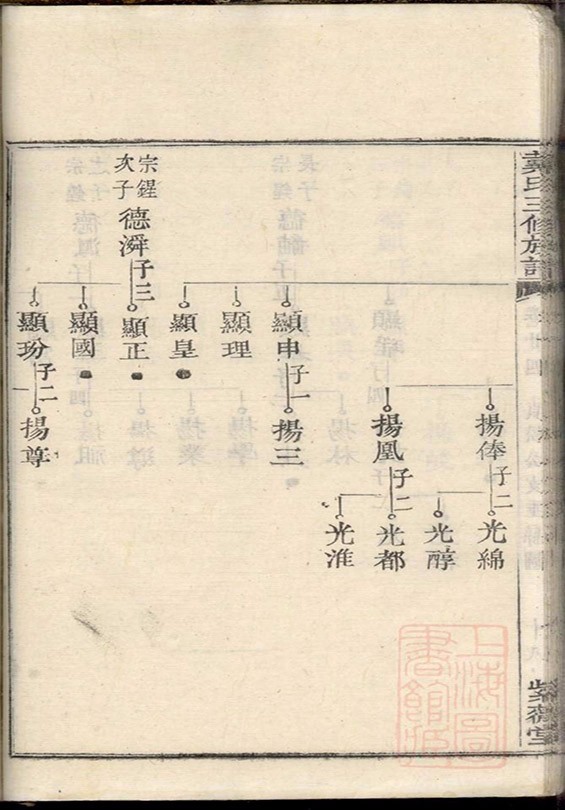 戴氏三修族譜
紫微堂
揚俸 子二
光綿
光醇
揚凰 子二
光都
光淮
顯申 子一
揚三
顯理
顯皇
宗鋥
次子
德濣 子三
顯正
顯國
顯玢 子二
揚尊
上海圖書館所